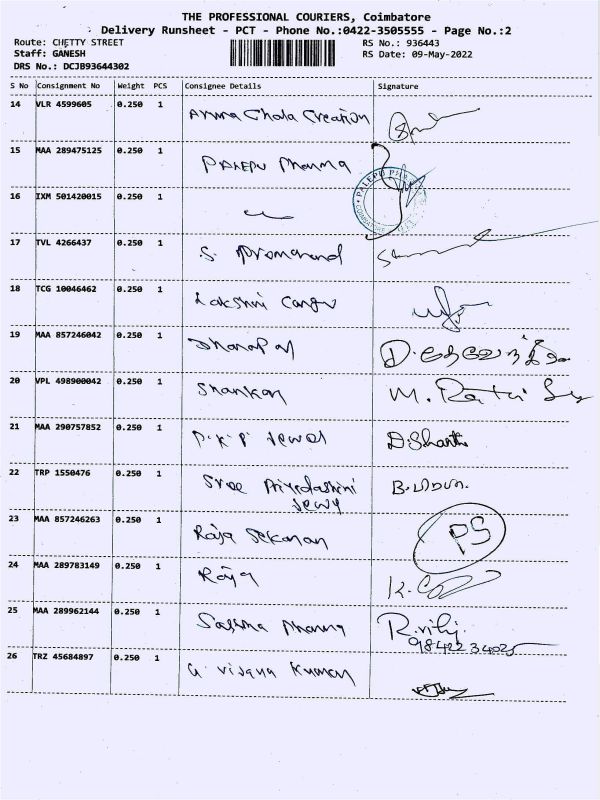 THE PROFESSIONAL COURIERS, Coimbatore
Delivery Runsheet - PCT - Phone No.:0422-3505555 - Page No.:2
Route: CHETTY STREET RS No.: 936443
Staff: GANESH RS Date: 09-May-2022
DRS No.: DCJB93644302
S No Consignment No Weight PCS Consignee Details Signature
14 VLR 4599605 0.250 1 Creation
15 MAA 289475125 0.250 1 PALEPU Pharma
PALEPU
COIMBATORE
16 IXM 501420015 0.250 1
17 TVL 4266437 0.250 1 S.
18 TCG 10046462 0.250 1 Lakshmi
19 MAA 857246042 0.250 1 Dhanapal D.
20 VPL 498900042 0.250 1 Shankar M.
21 MAA 290757852 0.250 1 P.K.P Jewel D.Shanthi
22 TRP 1550476 0.250 1 Sree Priyedashini B.
Jewy
23 MAA 857246263 0.250 1 Raja Sekaran PS
24 MAA 289783149 0.250 1 Raja K.
25 MAA 289962144 0.250 1 Pharma R.
9842234025
26 TRZ 45684897 0.250 1 G. Vijaya Kumar